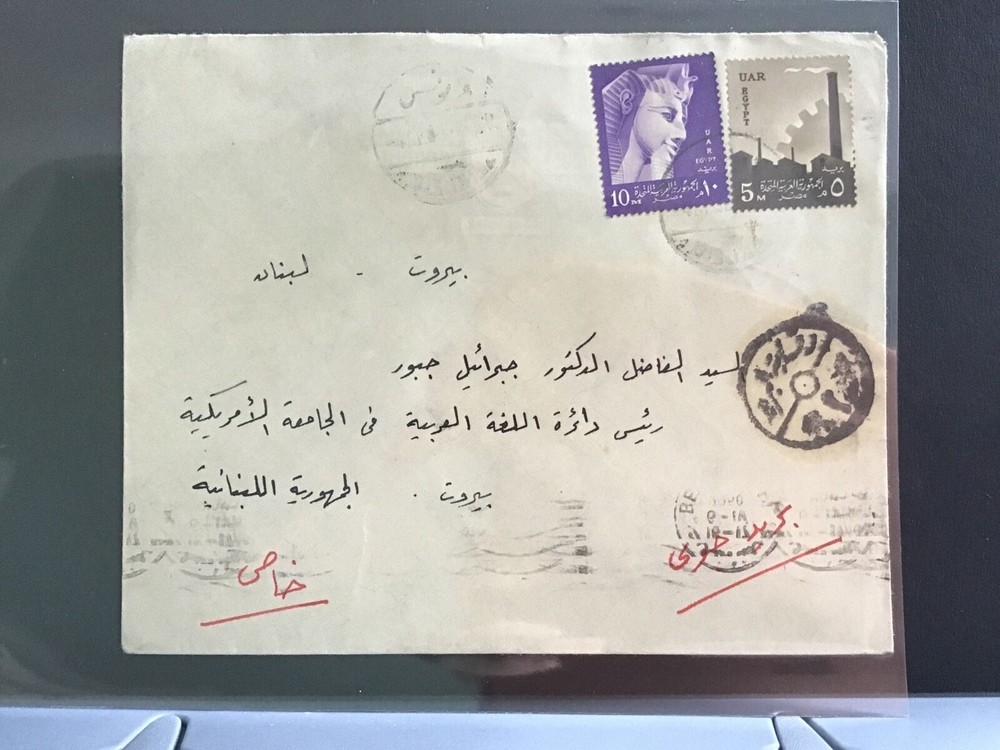 UAR
EGYPT
بريد
الجمهورية العربية المتحدة
مصر
10 M
١٠ م
UAR
EGYPT
بريد
الجمهورية العربية المتحدة
مصر
5 M
٥ م
بيروت - لبنان
السيد الفاضل الدكتور جبرائيل جبور
رئيس دائرة اللغة العربية في الجامعة الأمريكية
بيروت . الجمهورية اللبنانية
بريد جوي
خاص